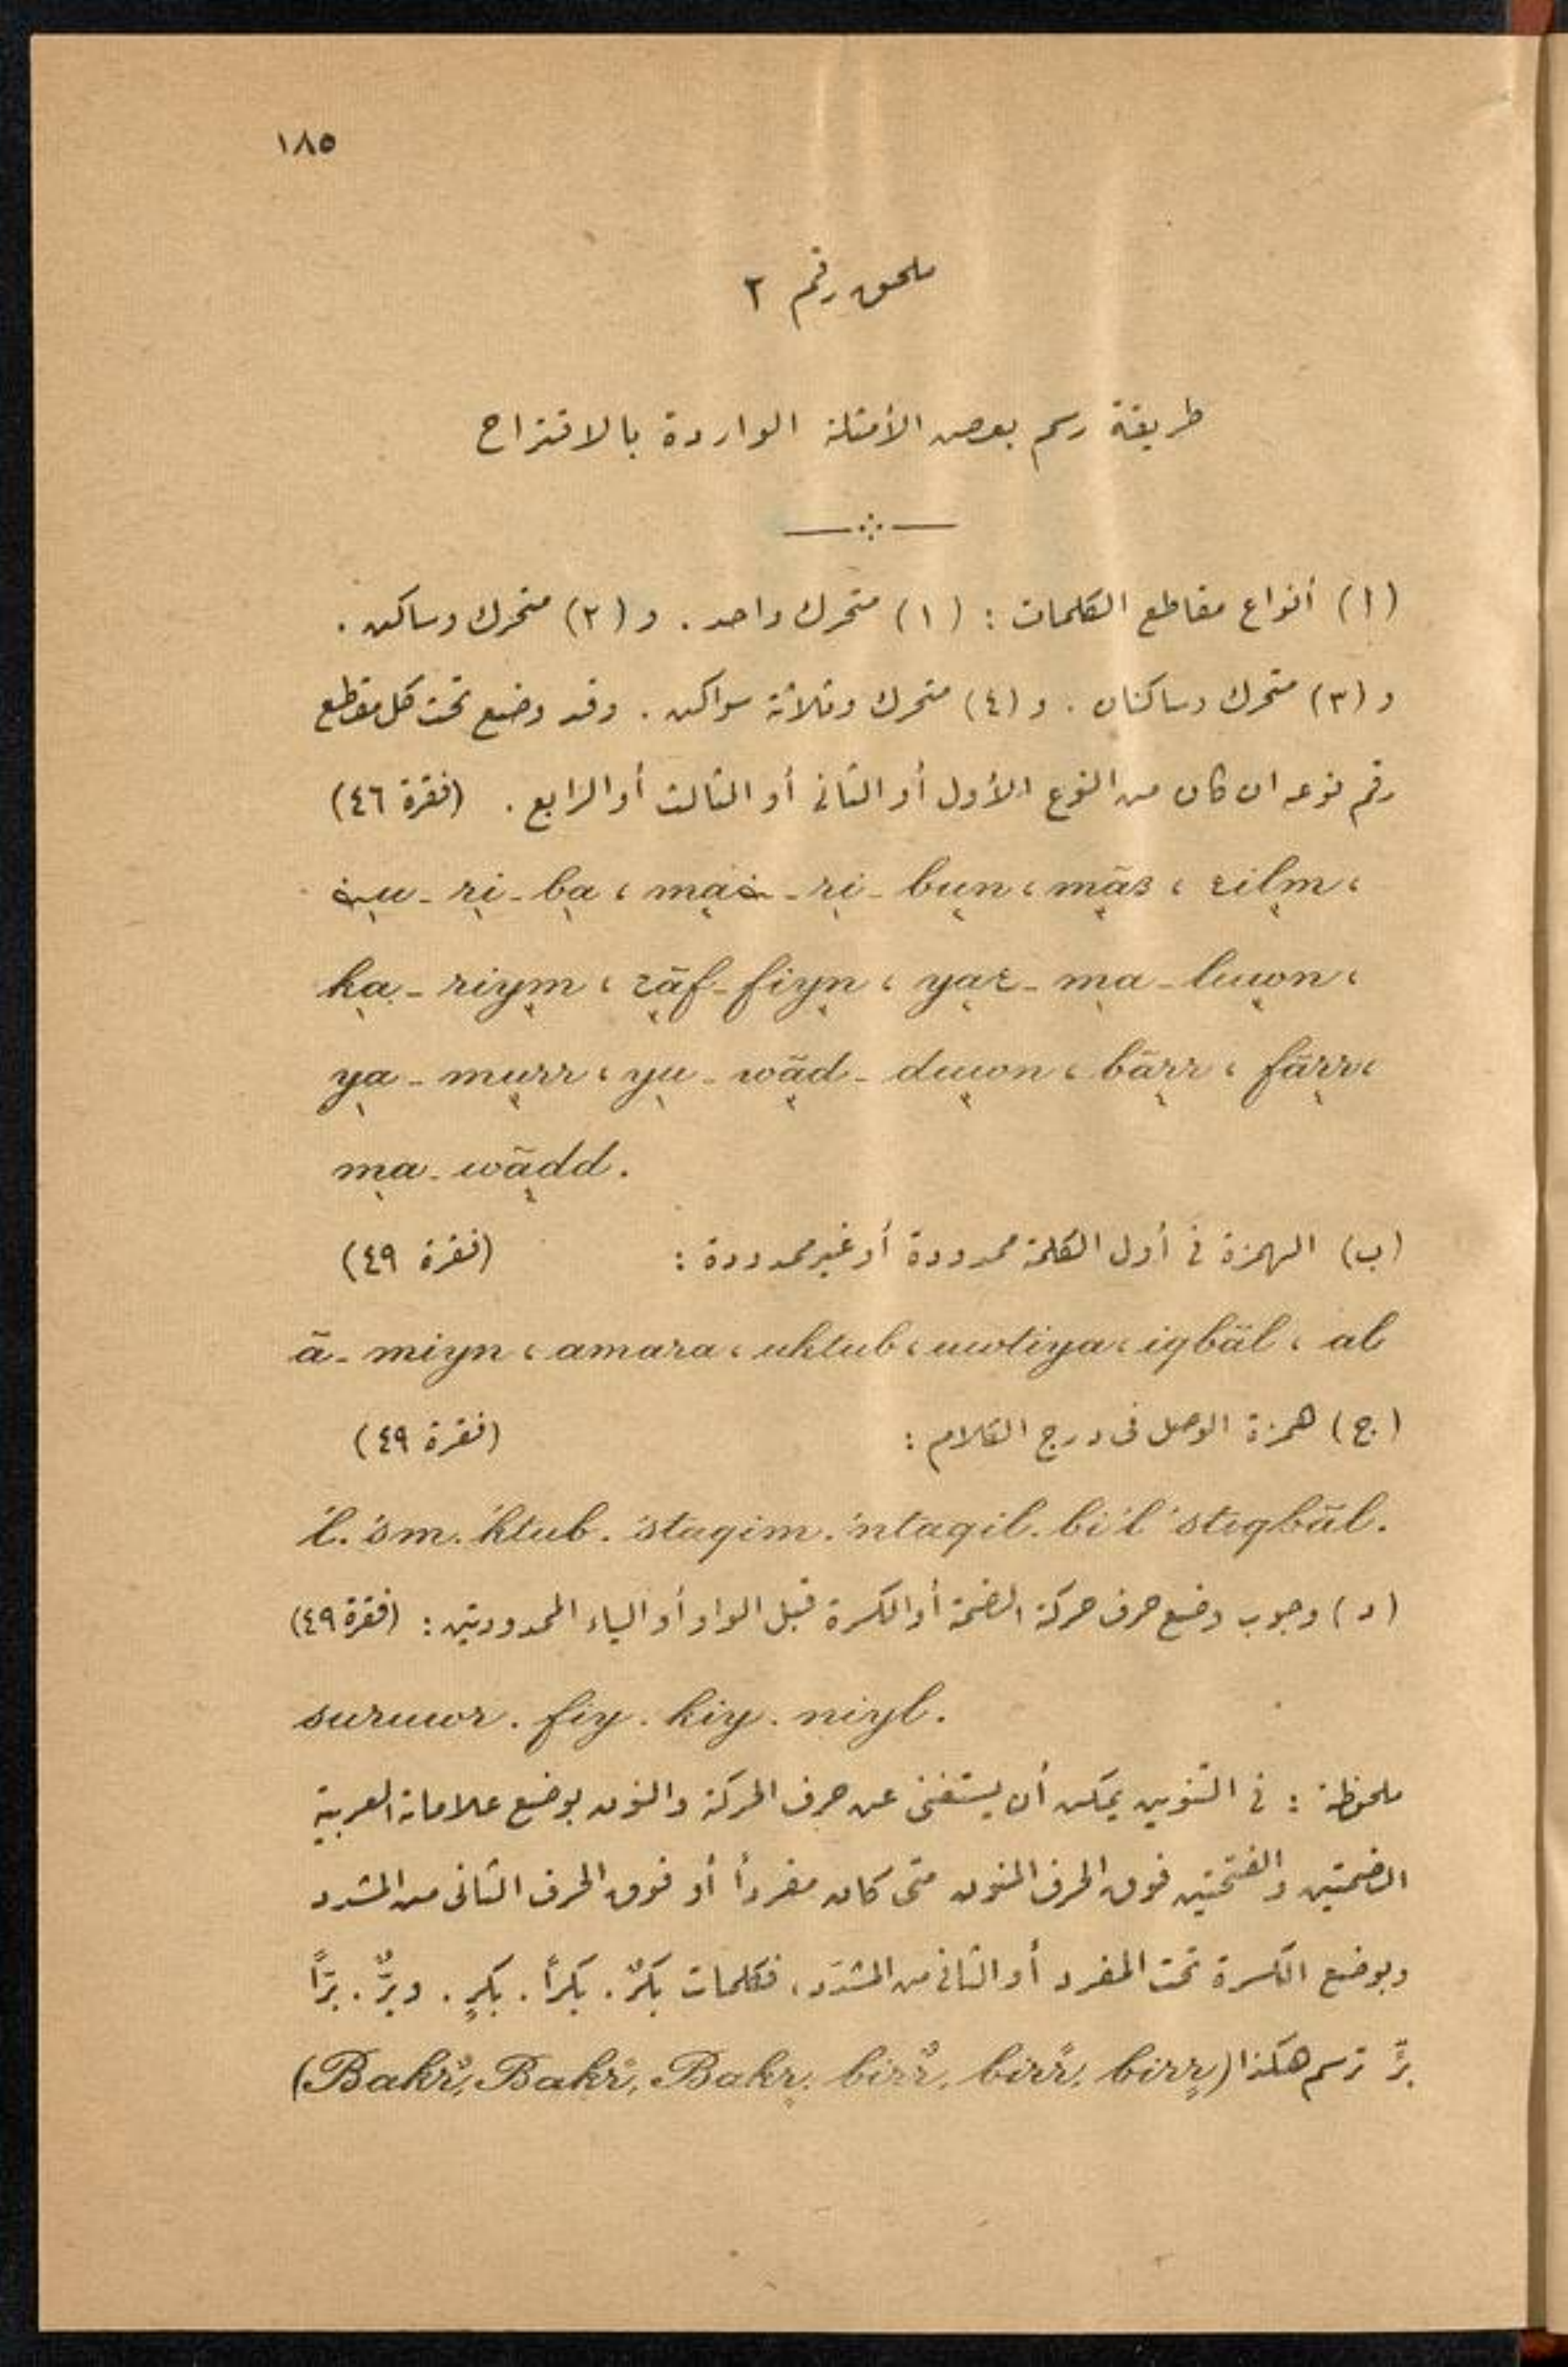 ١٨٥
ملحق رقم ٢
طريقة رسم بعض الأمثلة الواردة بالاقتراح
(ا) أنواع مقاطع الكلمات : (١) متحرك واحد . و (٢) متحرك وساكن .
و (٣) متحرك وساكنان . و (٤) متحرك وثلاثة سواكن . وقد وضع تحت كل مقطع
رقم نوعه ان كان من النوع الأول أو الثانى أو الثالث أو الرابع . (فقرة ٤٦)
ri - ba ، - ri - bun ، mãs ، عilm ،
ka - riym ، عãf - fiyn ، yaع - ma - luwn ،
ya - murr ، yu - wãd - duwn ، bãrr ، fãrr ،
ma - wãdd .
(ب) الهمزة فى أول الكلمة ممدودة أو غير ممدودة : (فقرة ٤٩)
ã - miyn ، amara ، uktub ، uwtiya ، iqbãl ، al
(ج) همزة الوصل فى درج الكلام : (فقرة ٤٩)
'l . 'sm . 'ktub . 'staqim . 'ntaqil . bi 'l 'stiqbãl .
(د) وجوب وضع حرف حركة الضمة أو الكسرة قبل الواو أو الياء الممدودتين : (فقرة ٤٩)
suruwr . fiy . kiy . niyl .
ملحوظة : فى التنوين يمكن أن يستغنى عن حرف الحركة والنون بوضع علامات العربية
الضمتين والفتحتين فوق الحرف المنون متى كان مفرداً أو فوق الحرف الثانى من المشدد
وبوضع الكسرة تحت المفرد أو الثانى من المشدّد ، فكلمات بكرٌ . بكراً . بكرٍ . وبرٌّ . برّاً
برٍّ ترسم هكذا (Bakrٌ, Bakrً, Bakrٍ, birrٌ, birrً, birrٍ)